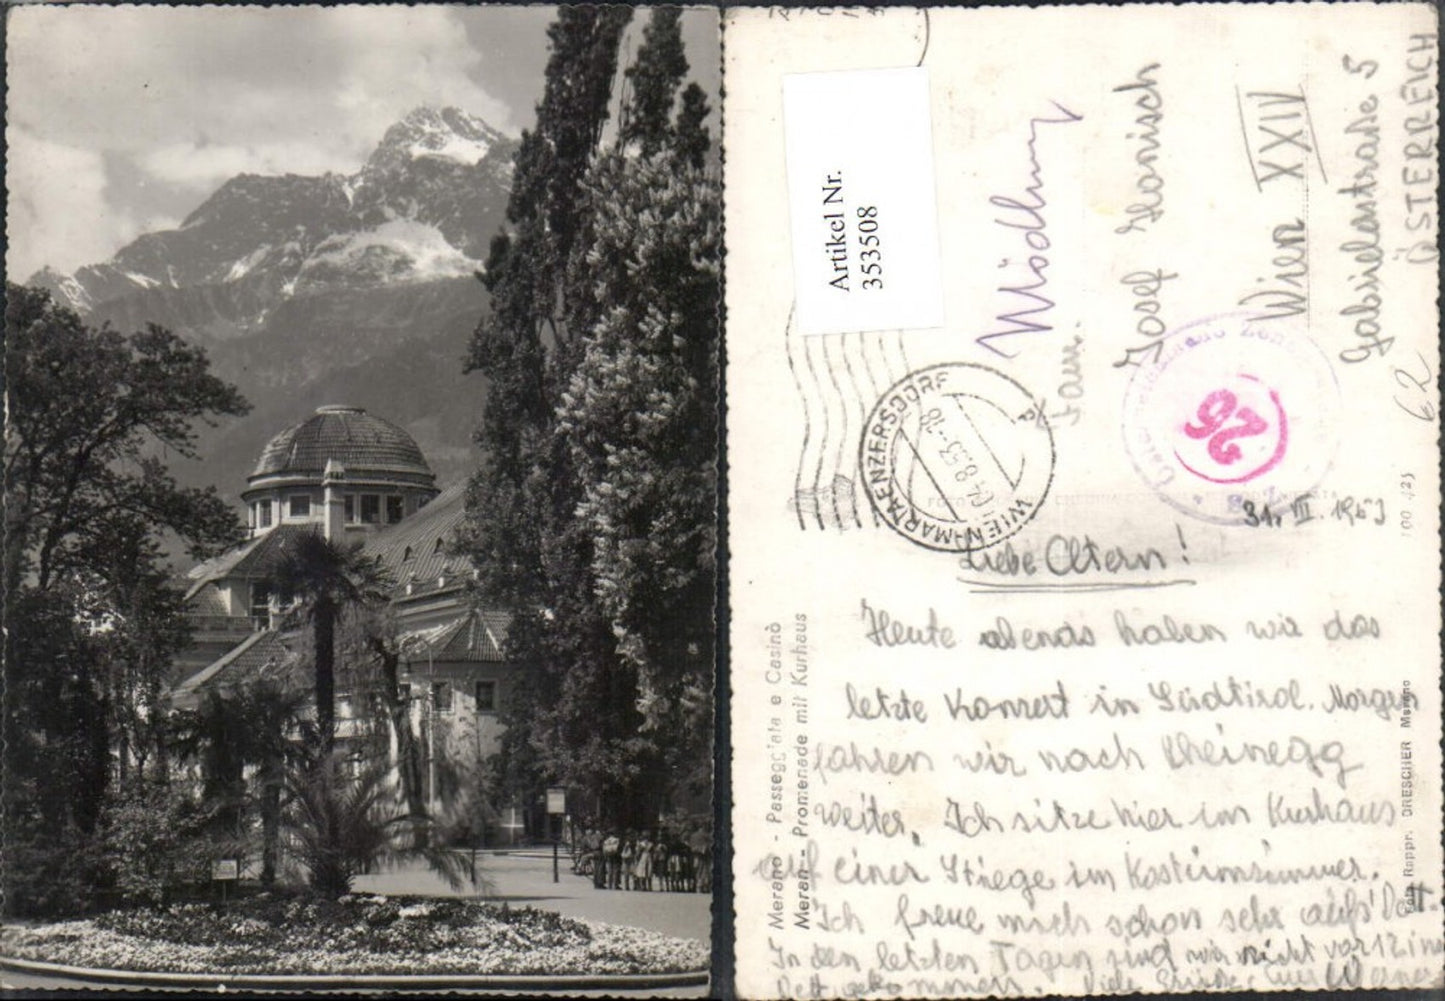 Artikel Nr.
353508
Mödling
Fam.
Josef Honisch
Wien XXIV
Gabrielerstraße 5
ÖSTERREICH
62
WIEN-MARIA ENZERSDORF
26
100 425
31. VII. 1953
Liebe Eltern!
Heute abends haben wir das
letzte Konzert in Südtirol. Morgen
fahren wir nach Rheinegg
weiter. Ich sitze hier im Kurhaus
auf einer Stiege im Kostümzimmer.
Ich freue mich schon sehr aufs Bett.
In den letzten Tagen sind wir nicht vor 12 ins
Bett gekommen. Viele Grüße, Euer Werner
Merano - Passeggiata e Casinò
Meran - Promenade mit Kurhaus
Foto Rappr. DRESCHER Merano